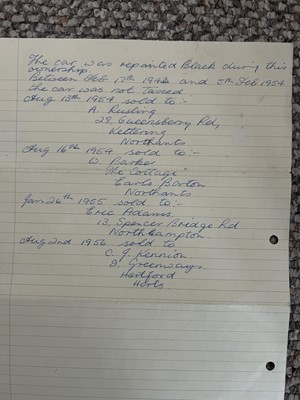 The car was repainted Black during this
ownership.
Between Feb 17th 1948 and 5th Feb 1954
the car was not taxed.
Aug 13th 1954 sold to :-
A. Rusting
28, Queensberry Rd,
Kettering
Northants
Aug 16th 1954 sold to :-
W. Barker
"The Cottage"
Earls Barton
Northants
Jan 26th 1955 sold to :-
Eric Adams.
13, Spencer Bridge Rd
Northampton
Aug 2nd 1956 sold to
C. J. Kennion.
Greenways
Hertford
Herts